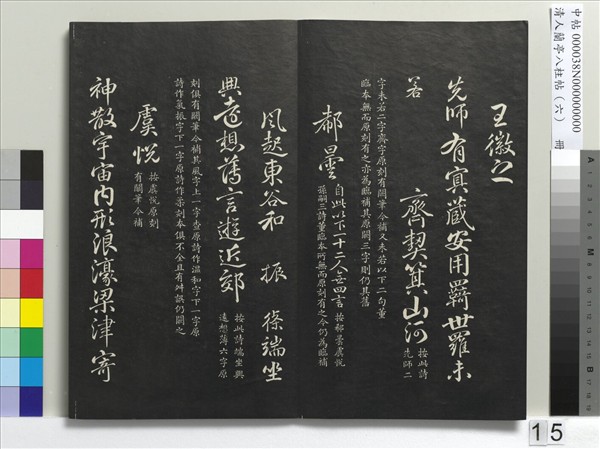 王徽之
先師有冥藏安用羈世羅未
若
齊契箕山河
按此詩
先師二
字未若二字齊字原刻有闕筆今補又未若以下二句董
臨本無而原刻有之亦為臨補其原闕三字則仍其舊
郗曇
自此以下一十二人各四言
按郗曇虞悅
孫嗣三詩董臨本所無而原刻有之今仍為臨補
風起東谷和 振 條端坐
興遠想薄言遊近郊
按此詩端坐興
遠想薄六字原
刻俱有闕筆今補其風字上一字查原詩作溫和字下一字原
詩作氣振字下一字原詩作柔刻本俱不全且有舛誤仍闕之
虞悅
按虞悅原刻
有闕筆今補
神散宇宙內形浪濠梁津寄
中帖 000038N000000000
清人蘭亭八柱帖（六） 冊
15